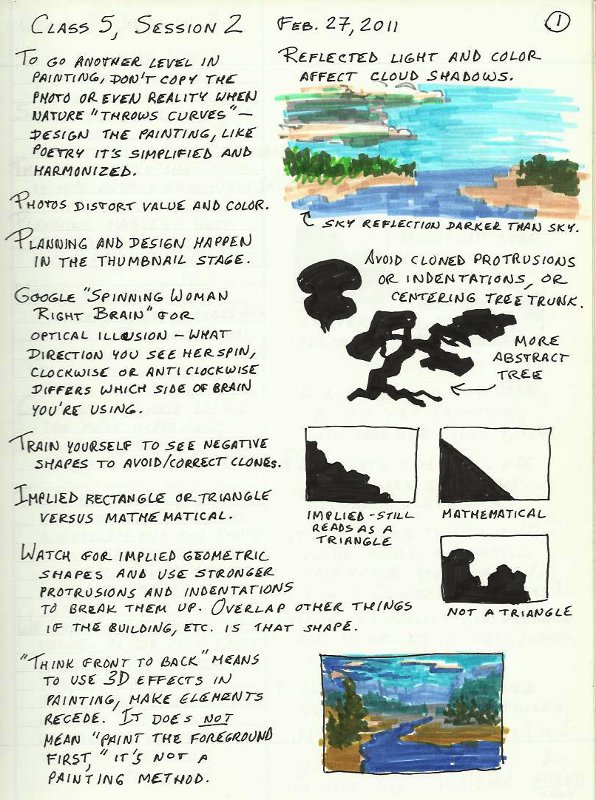 CLASS 5, SESSION 2
FEB. 27, 2011
1
TO GO ANOTHER LEVEL IN
PAINTING, DON'T COPY THE
PHOTO OR EVEN REALITY WHEN
NATURE "THROWS CURVES" —
DESIGN THE PAINTING, LIKE
POETRY IT'S SIMPLIFIED AND
HARMONIZED.
PHOTOS DISTORT VALUE AND COLOR.
PLANNING AND DESIGN HAPPEN
IN THE THUMBNAIL STAGE.
GOOGLE "SPINNING WOMAN
RIGHT BRAIN" FOR
OPTICAL ILLUSION – WHAT
DIRECTION YOU SEE HER SPIN,
CLOCKWISE OR ANTICLOCKWISE
DIFFERS WHICH SIDE OF BRAIN
YOU'RE USING.
TRAIN YOURSELF TO SEE NEGATIVE
SHAPES TO AVOID/CORRECT CLONES.
IMPLIED RECTANGLE OR TRIANGLE
VERSUS MATHEMATICAL.
WATCH FOR IMPLIED GEOMETRIC
SHAPES AND USE STRONGER
PROTRUSIONS AND INDENTATIONS
TO BREAK THEM UP. OVERLAP OTHER THINGS
IF THE BUILDING, ETC. IS THAT SHAPE.
"THINK FRONT TO BACK" MEANS
TO USE 3D EFFECTS IN
PAINTING, MAKE ELEMENTS
RECEDE. IT DOES NOT
MEAN "PAINT THE FOREGROUND
FIRST," IT'S NOT A
PAINTING METHOD.
REFLECTED LIGHT AND COLOR
AFFECT CLOUD SHADOWS.
SKY REFLECTION DARKER THAN SKY.
AVOID CLONED PROTRUSIONS
OR INDENTATIONS, OR
CENTERING TREE TRUNK.
MORE
ABSTRACT
TREE
IMPLIED – STILL
READS AS A
TRIANGLE
MATHEMATICAL
NOT A TRIANGLE